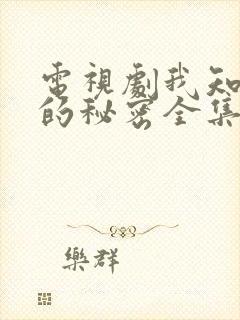 電視劇我知
的秘密全集
樂群